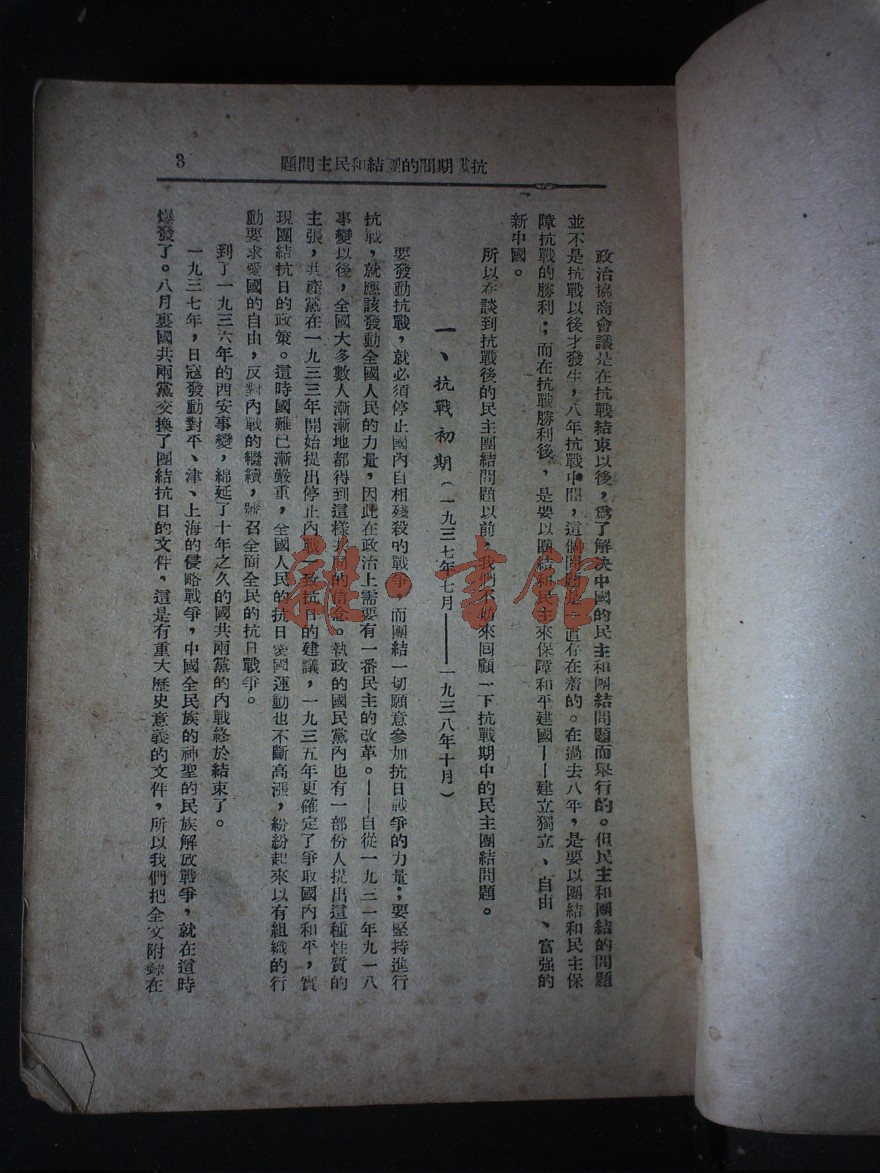 抗戰期間的團結和民主問題
3
政治協商會議是在抗戰結束以後,爲了解決中國的民主和團結問題而舉行的。但民主和團結的問題
並不是抗戰以後才發生,八年抗戰中間,這個問題是一直存在着的。在過去八年,是要以團結和民主保
障抗戰的勝利;而在抗戰勝利後,是要以團結和民主來保障和平建國——建立獨立、自由、富强的
新中國。
所以在談到抗戰後的民主團結問題以前,我們不妨來回顧一下抗戰期中的民主團結問題。
一、抗戰初期(一九三七年七月——一九三八年十月)
要發動抗戰,就必須停止國內自相殘殺的戰爭,而團結一切願意參加抗日戰爭的力量;要堅持進行
抗戰,就應該發動全國人民的力量,因此在政治上需要有一番民主的改革。——自從一九三一年九一八
事變以後,全國大多數人漸漸地都得到這樣共同的信念。執政的國民黨內也有一部份人提出這種性質的
主張,共產黨在一九三三年開始提出停止內戰一致抗日的建議,一九三五年更確定了爭取國內和平,實
現團結抗日的政策。這時國難已漸嚴重,全國人民的抗日愛國運動也不斷高漲,紛紛起來以有組織的行
動要求愛國的自由,反對內戰的繼續,號召全面全民的抗日戰爭。
到了一九三六年的西安事變,綿延了十年之久的國共兩黨的內戰終於結束了。
一九三七年,日寇發動對平、津、上海的侵略戰爭,中國全民族的神聖的民族解放戰爭,就在這時
爆發了。八月裏國共兩黨交換了團結抗日的文件,這是有重大歷史意義的文件,所以我們把全文附錄在
雜·書館